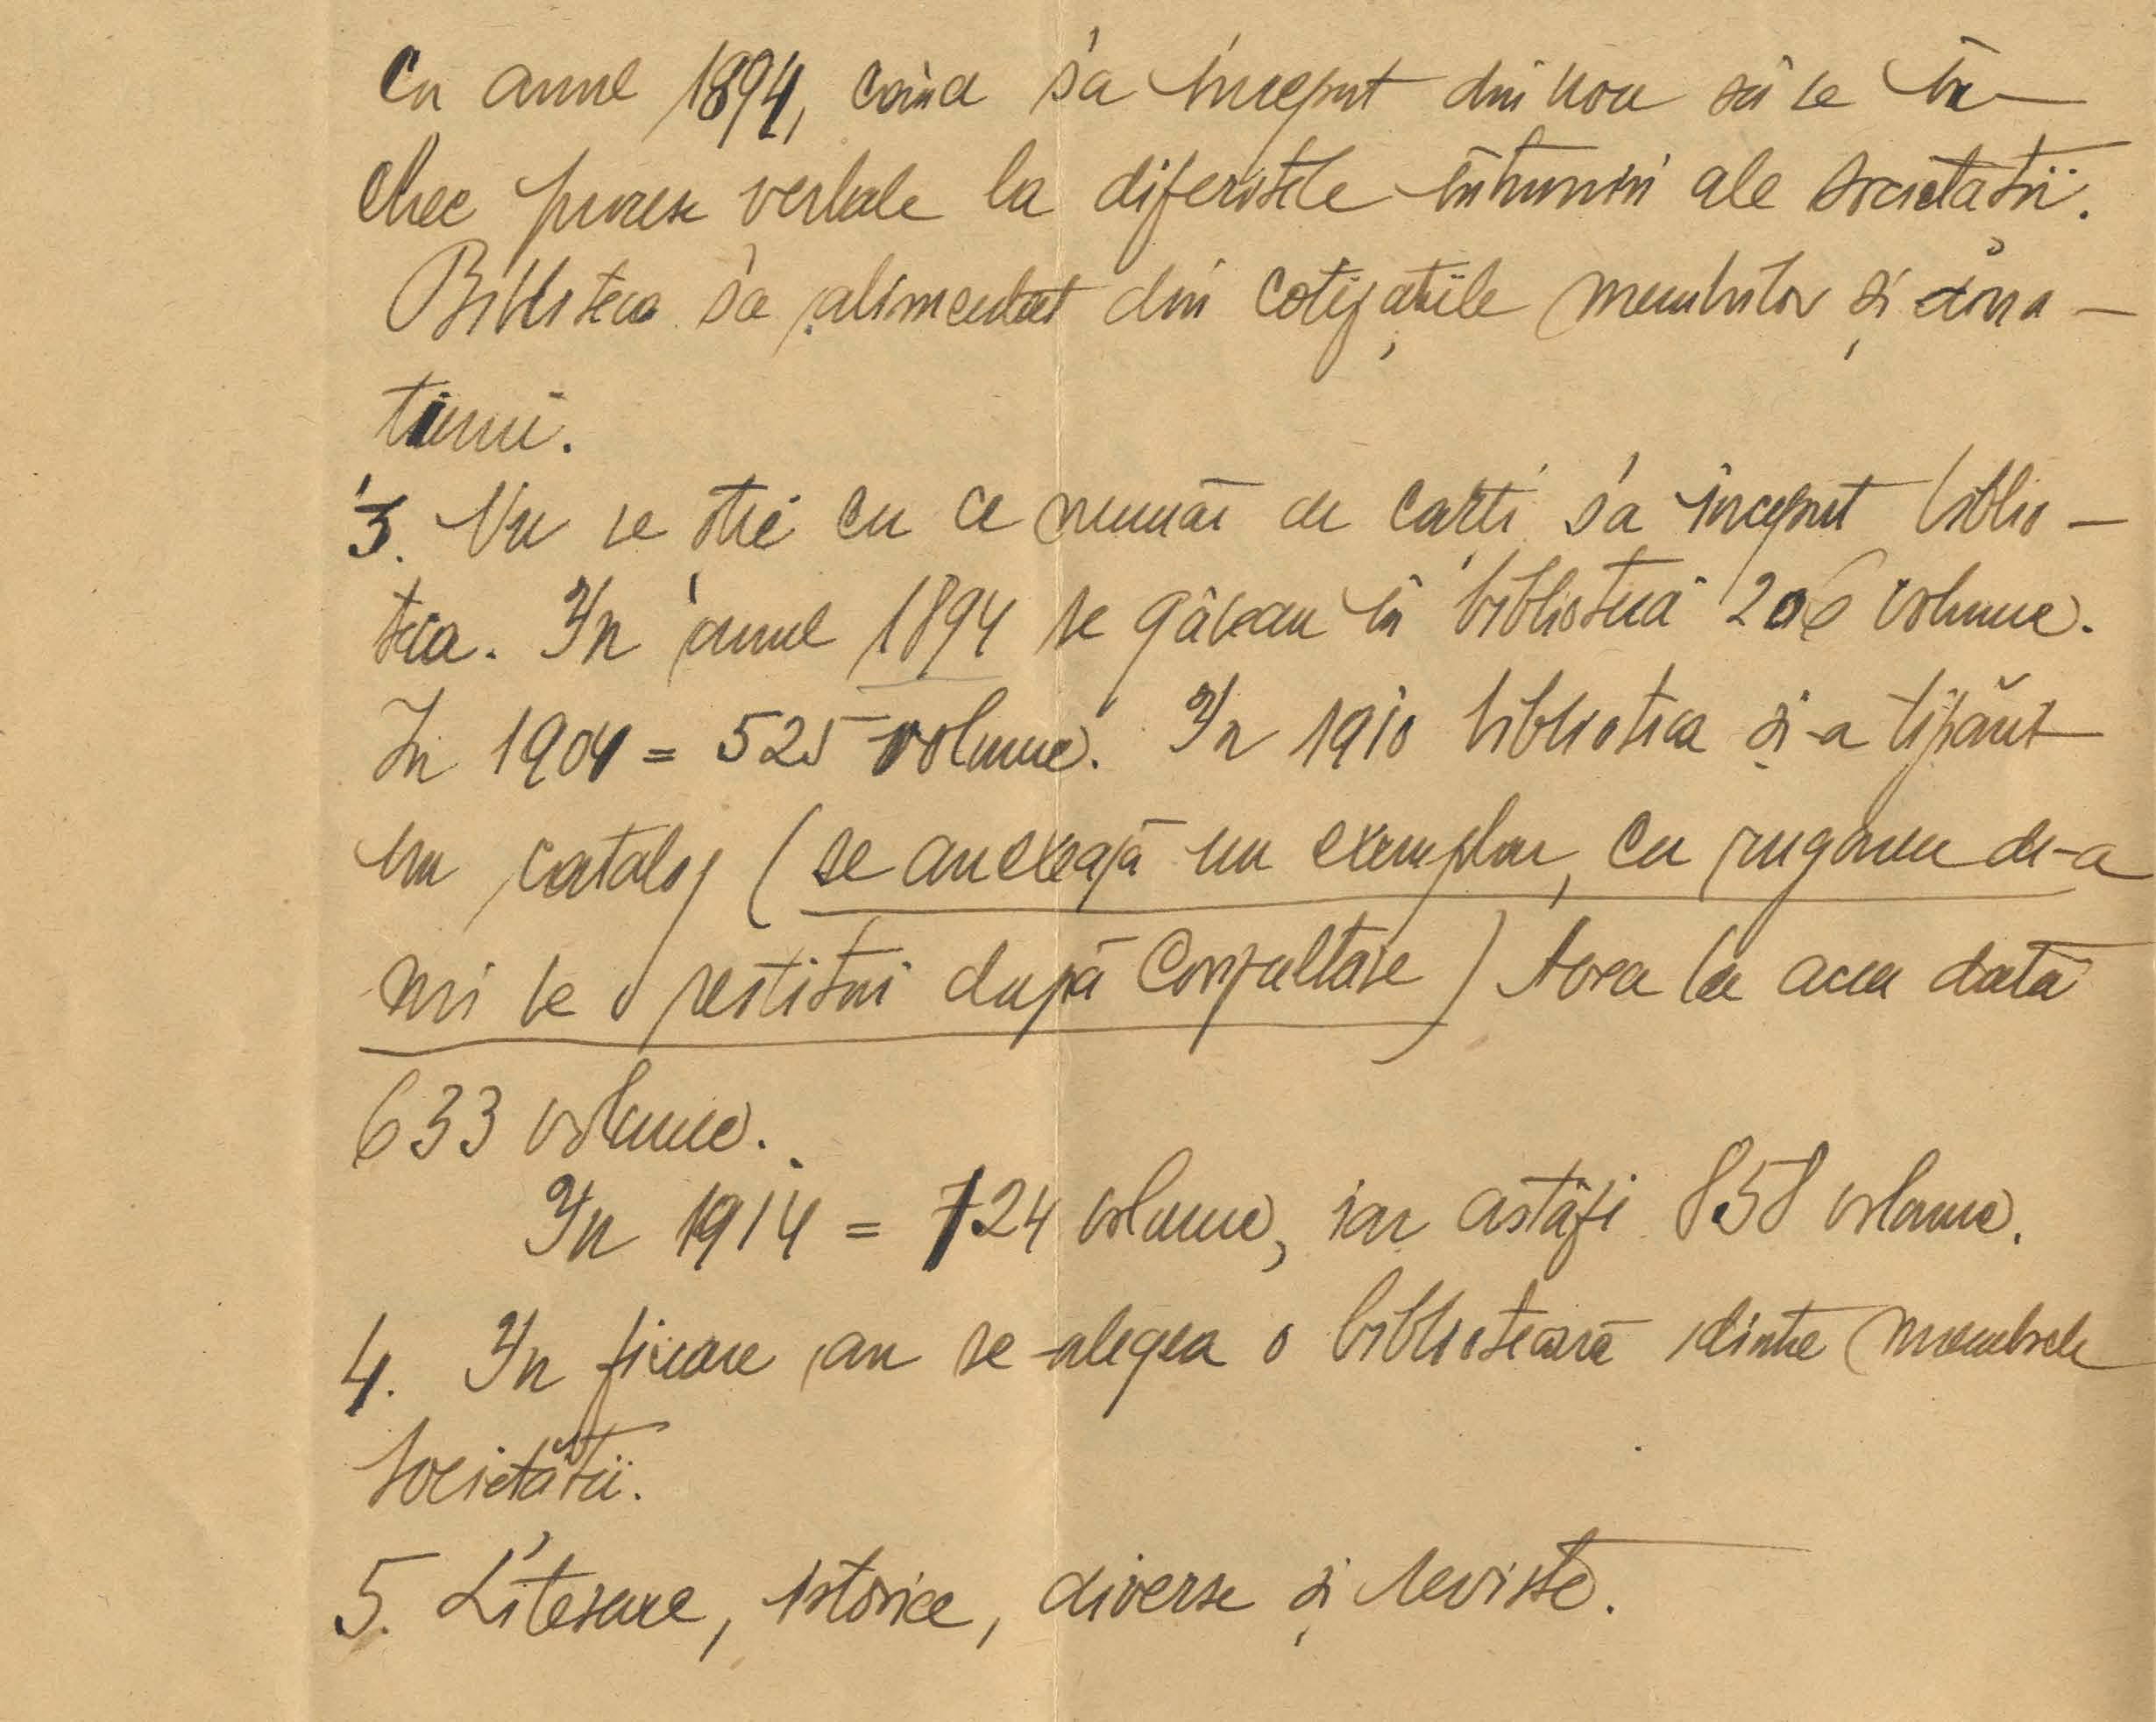 cu anul 1894, când s'a început din nou să se în-
cheie procese verbale la diferitele întruniri ale societații.
Biblioteca s'a alimentat din cotizațiile membrilor și dona-
tiuni.
3. Nu se știe cu ce număr de carti s'a început biblio-
teca. In anul 1894 se găseau în bibliotecă 206 volume.
In 1904 = 525 volume. In 1910 biblioteca și-a tipărit
un catalog (se anexează un exemplar, cu rugarea de-a
mi se o restitui după consultare) Avea la acea dată
633 volume.
In 1914 = 724 volume, iar astăzi 858 volume.
4. In fiecare an se alegea o bibliotecară dintre membrele
societății.
5. Literare, istorice, diverse și reviste.